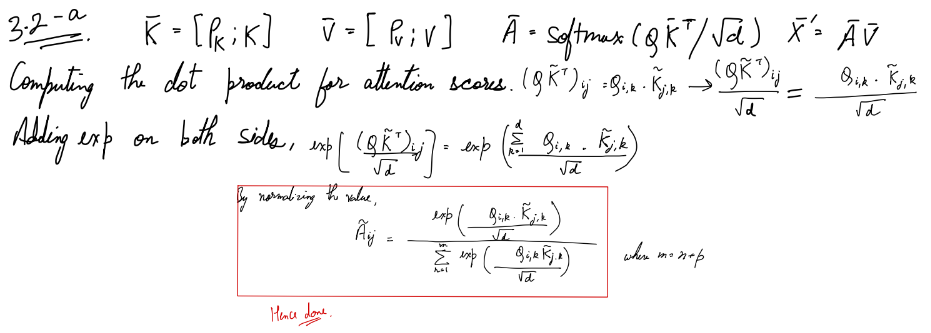 3.2-a. K̄ = [P_K ; K] V̄ = [P_V ; V] Ā = softmax (Q K̄ᵀ/√d) X̄' = Ā V̄
Computing the dot product for attention scores. (Q K̃ᵀ)_ij = Q_i,k · K̃_j,k → (Q K̃ᵀ)_ij / √d = Q_i,k · K̃_j,k / √d
Adding exp on both sides, exp[(Q K̃ᵀ)_ij / √d] = exp(∑_{k=1}^{d} Q_i,k · K̃_j,k / √d)
By normalizing the value,
Ã_ij = exp(Q_i,k · K̃_j,k / √d) / ∑_{r=1}^{m} exp(Q_i,k K̃_j,k / √d) where m = n+p
Hence done.